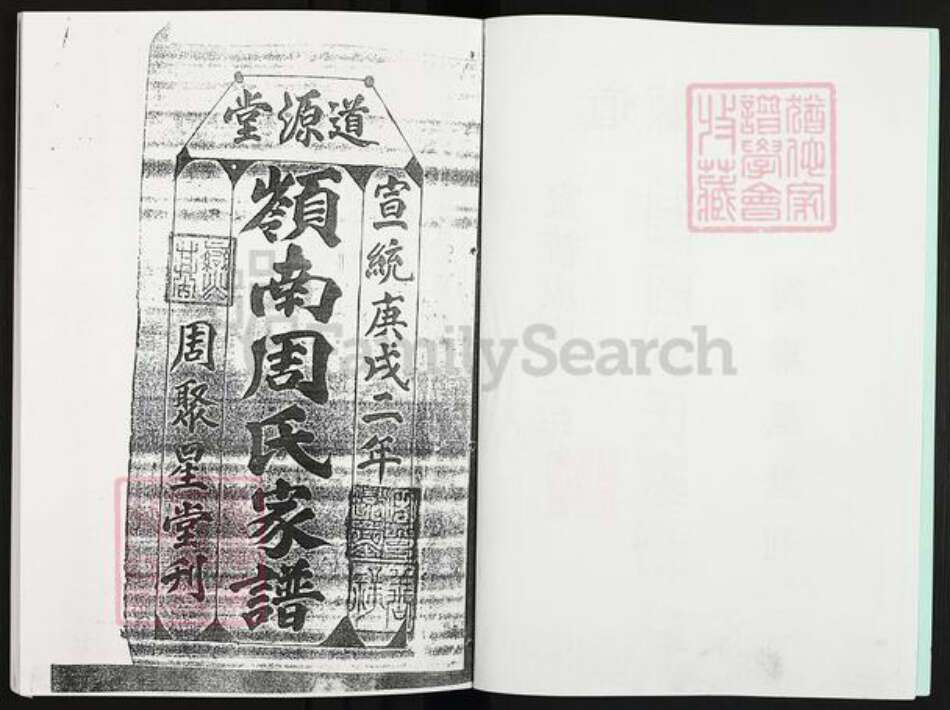 道源堂
宣統庚戌二年
嶺南周氏家譜
周聚星堂刊
譜學會
收藏
FamilySearch